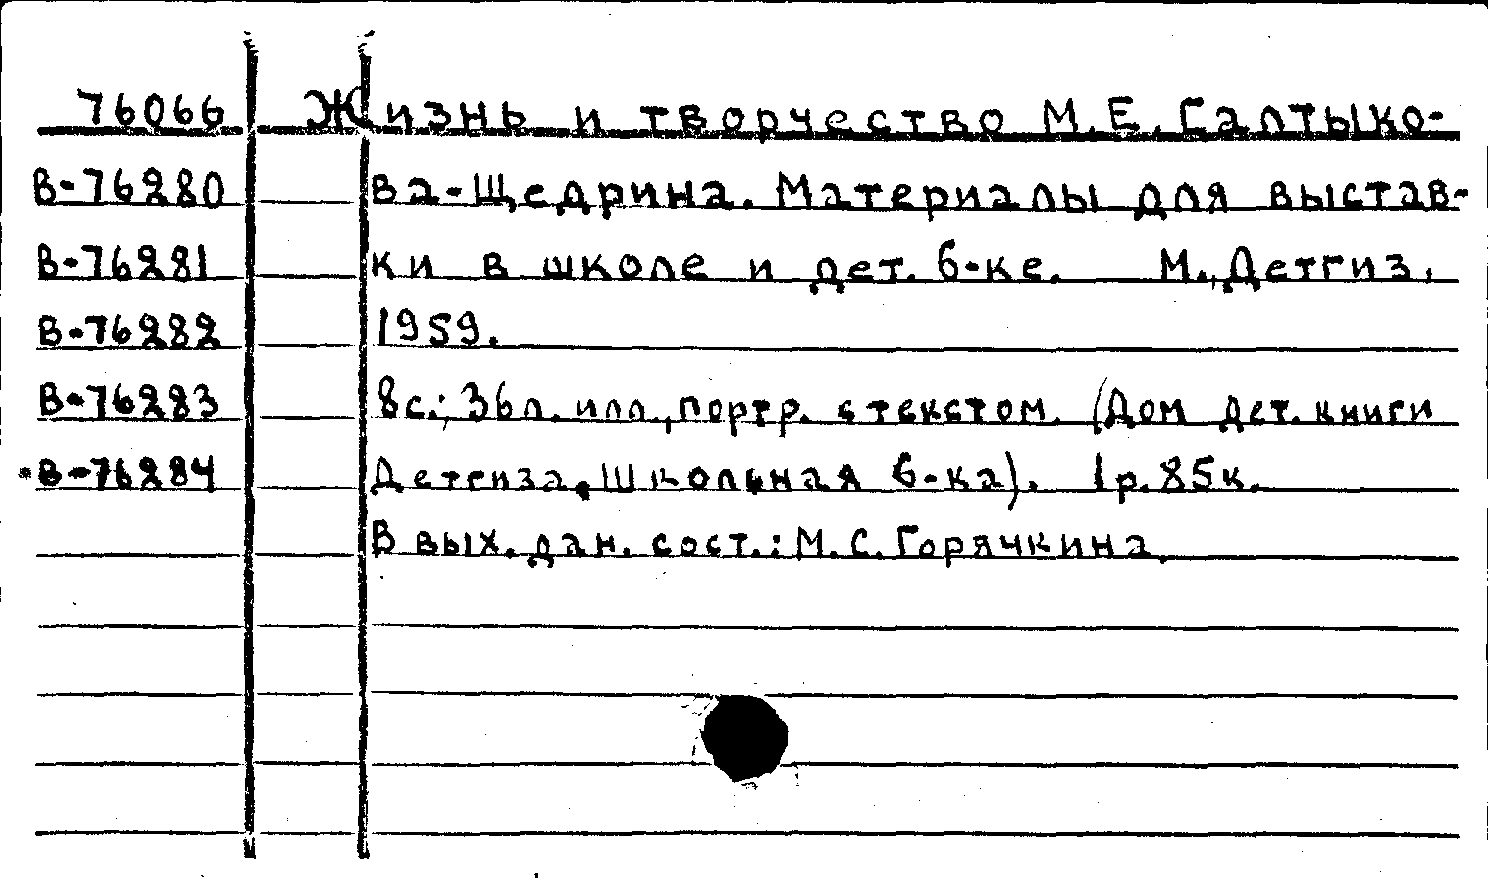 76066 Жизнь и творчество М.Е. Салтыко-
В-76280 ва-Щедрина. Материалы для выстав-
В-76281 ки в школе и дет. б-ке. М., Детгиз,
В-76282 1959.
В-76283 8с.; 36л. илл., портр. с текстом. (Дом дет. книги
В-76284 Детгиза. Школьная б-ка). 1р. 85к.
В вых. дан. сост.: М.С. Горячкина.